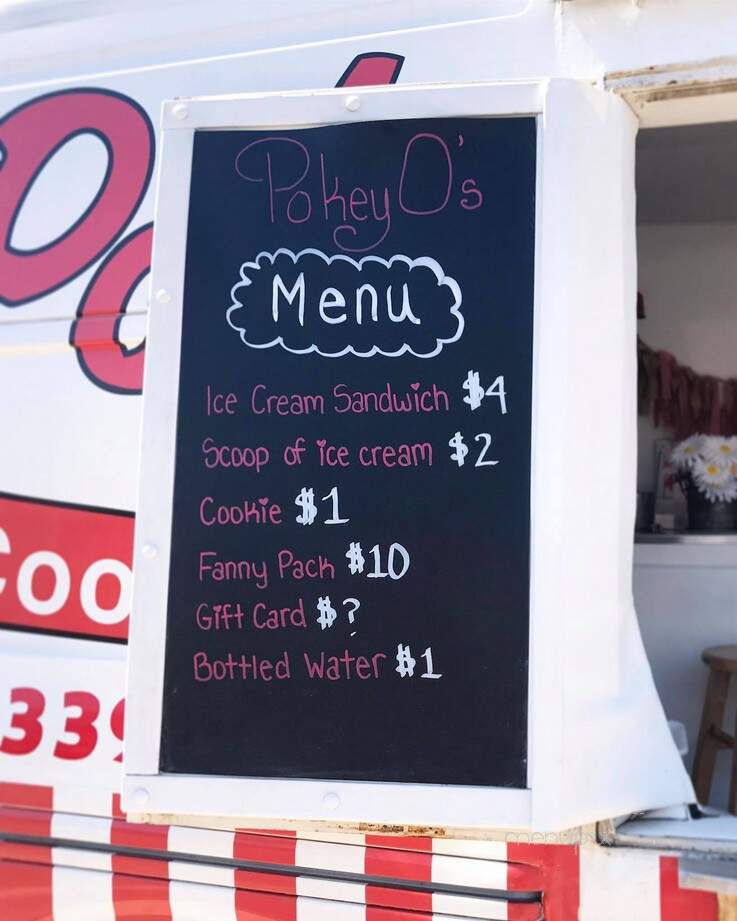 Pokey O's
Menu
Ice Cream Sandwich $4
Scoop of ice cream $2
Cookie $1
Fanny Pack $10
Gift Card $?
Bottled Water $1
coo
339